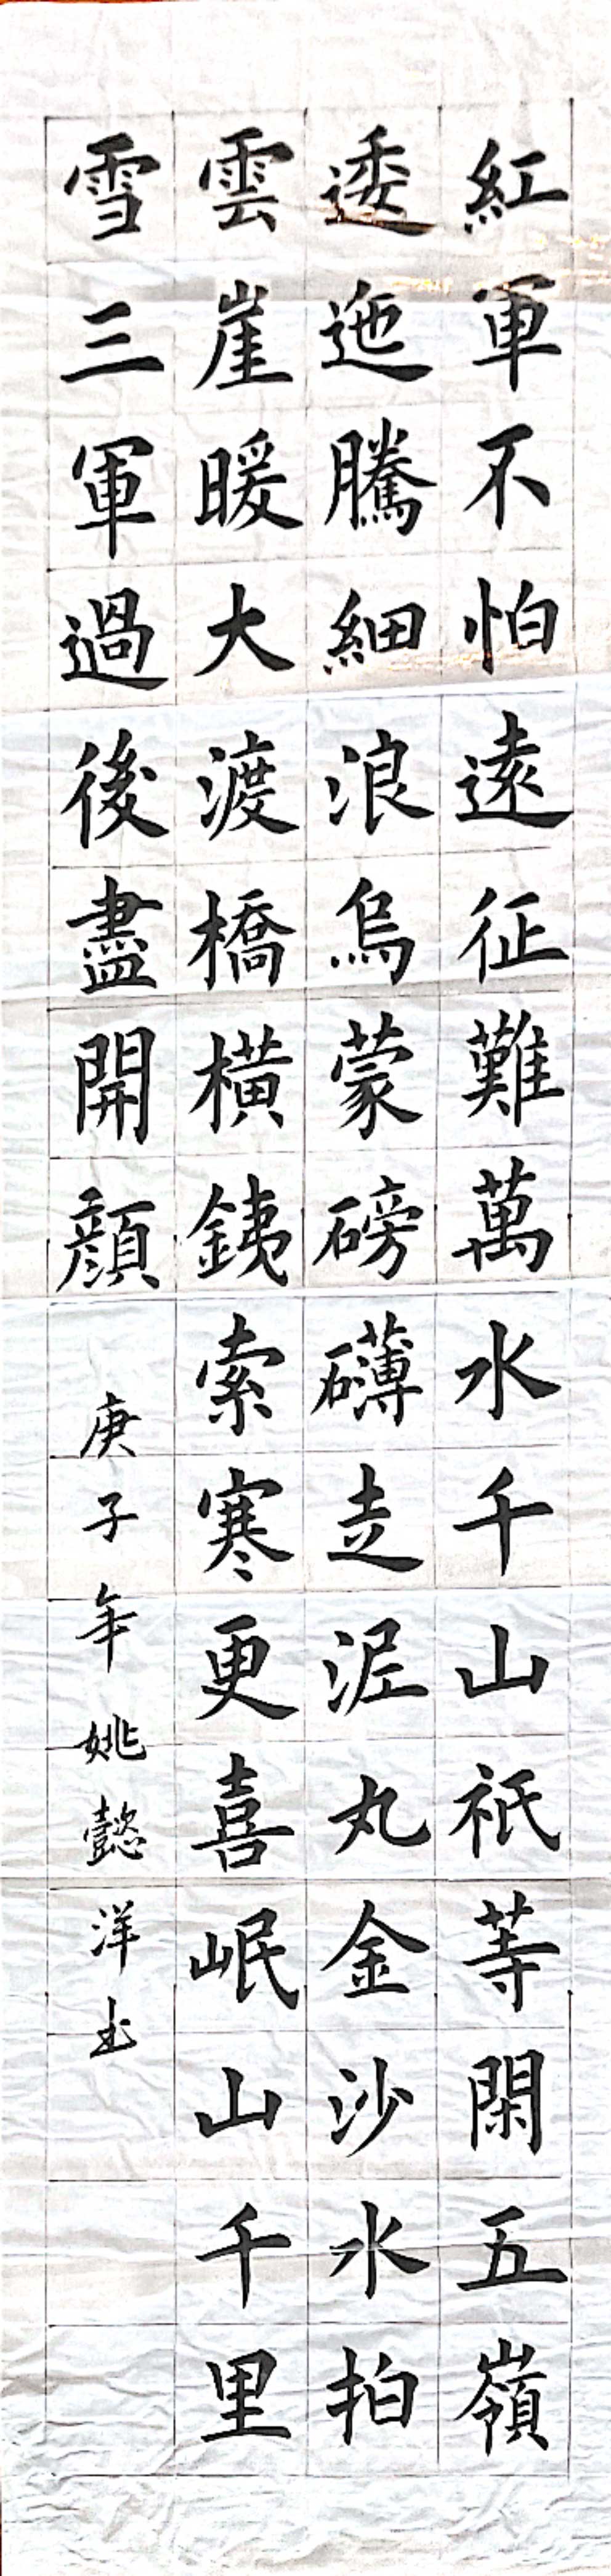 紅軍不怕遠征難萬水千山祇等閑五嶺
逶迤騰細浪烏蒙磅礴走泥丸金沙水拍
雲崖暖大渡橋橫銕索寒更喜岷山千里
雪三軍過後盡開顔
庚子年姚懿洋书